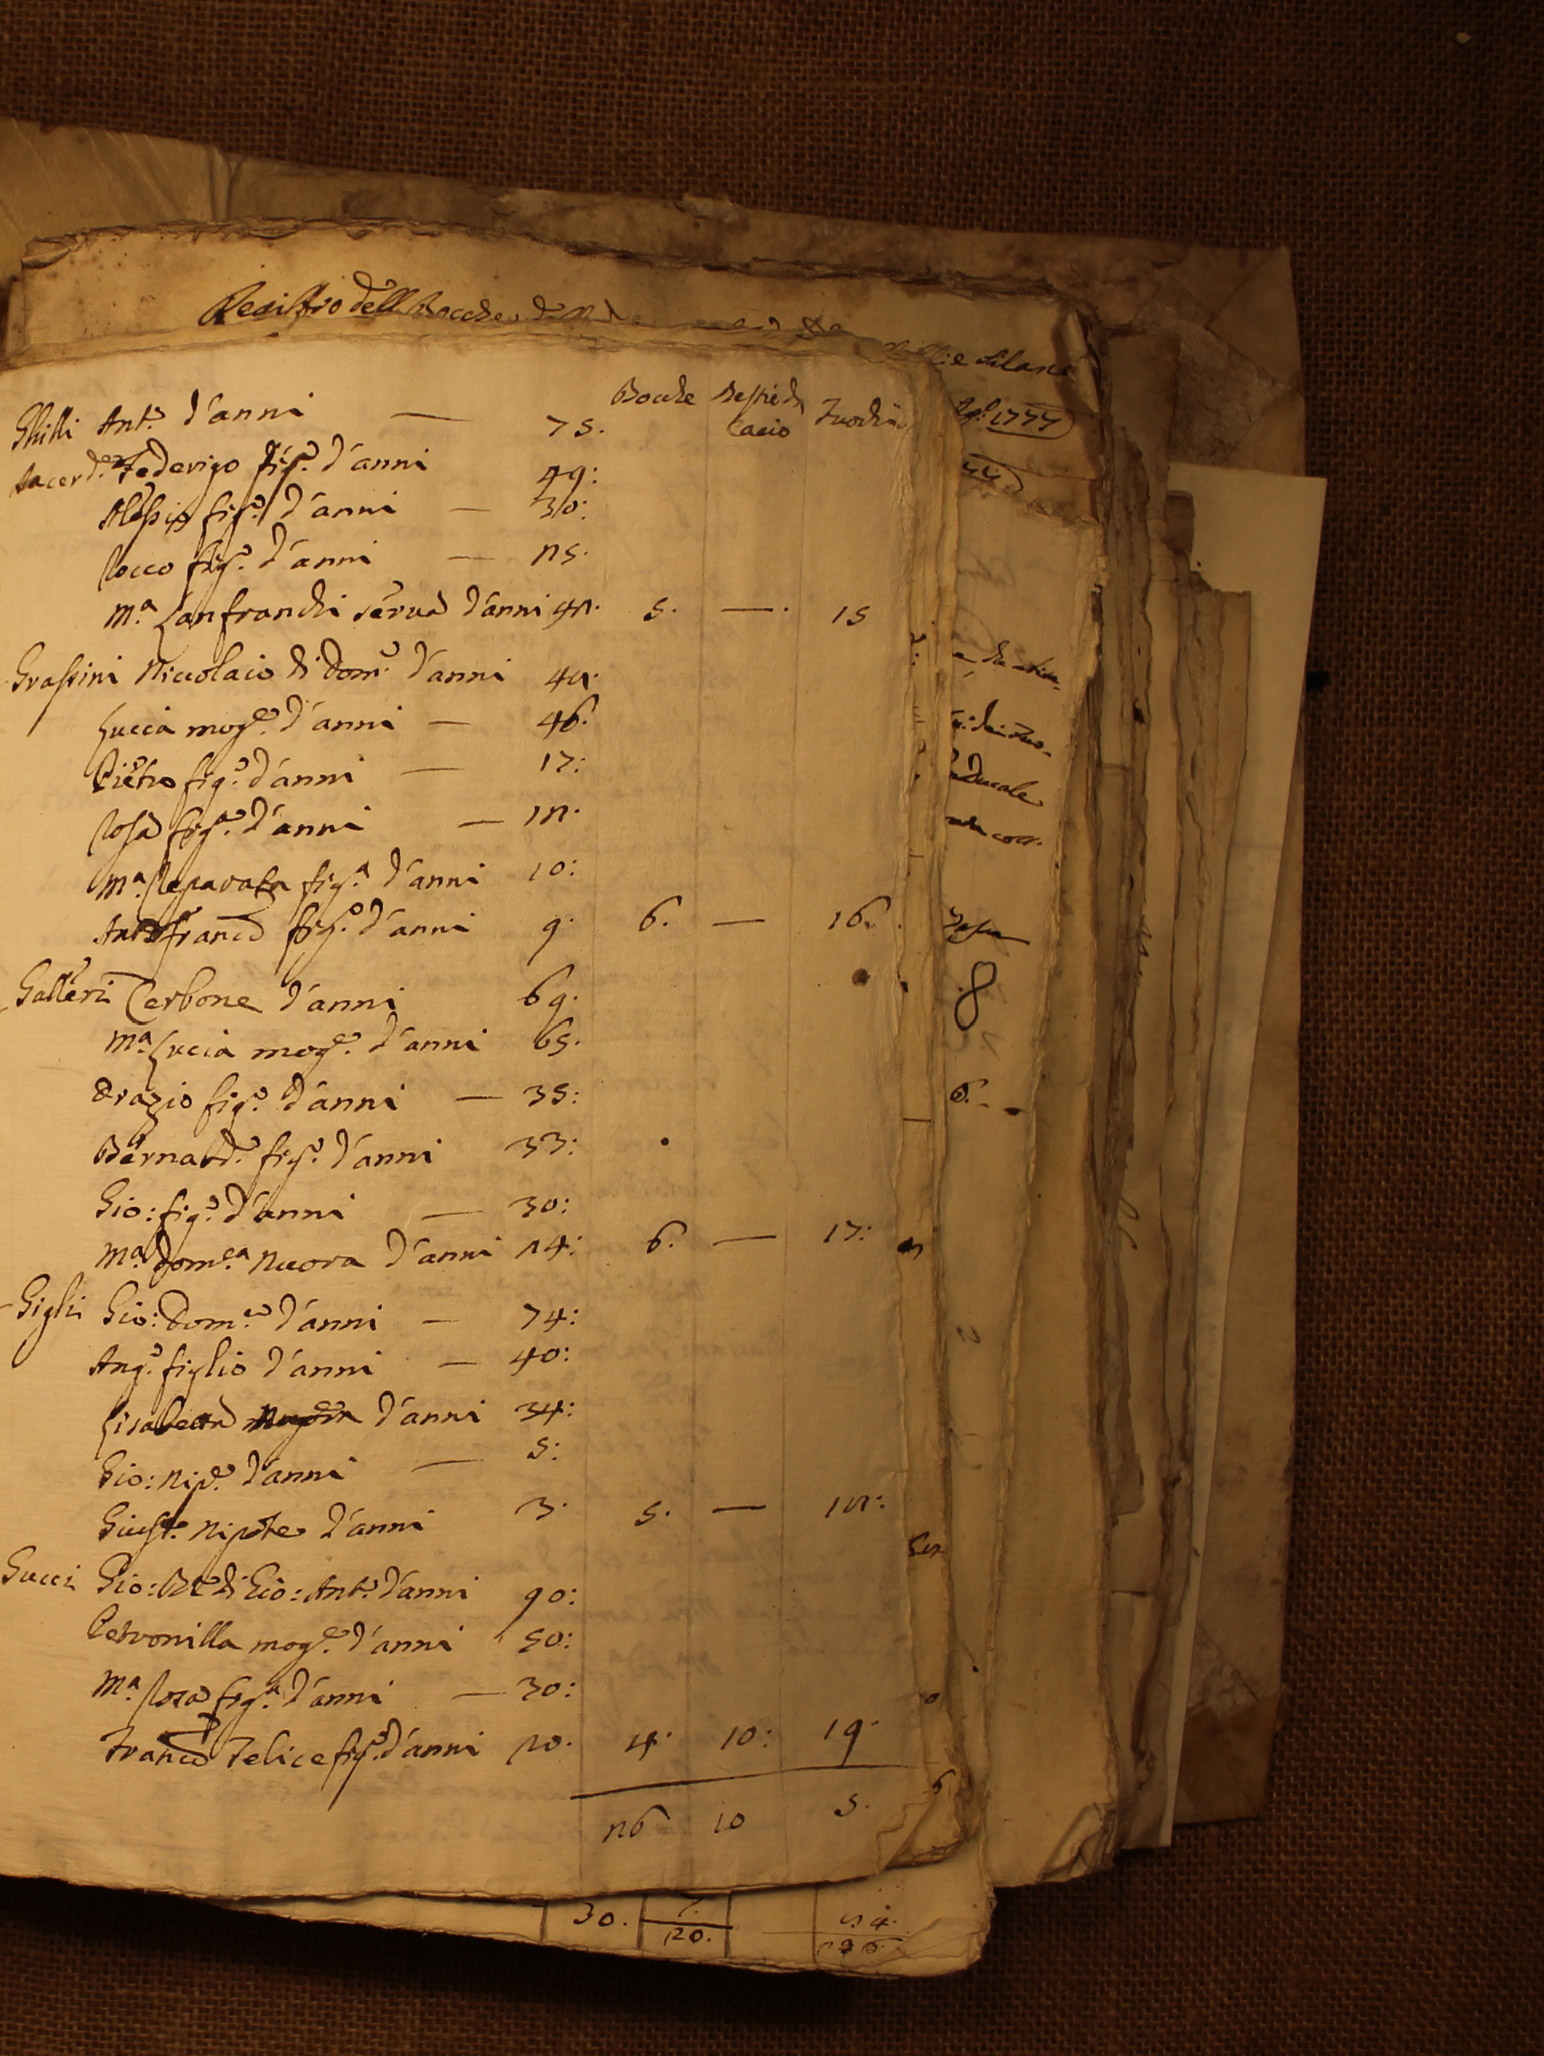 Registro dell Bocche
Bocche Bestie di Fuochi
cacio
Ghilli Ant.o d'anni — 75.
Sacerd.e Federigo fig.o d'anni 49:
Alessio fig.o d'anni — 30:
Rocco fig.o d'anni — 25.
M.a Lanfranchi serva d'anni 42. 5. — 15
Grassini Niccolaio di Dom.o d'anni 42.
Lucia mog.e d'anni — 46.
Pietro fig.o d'anni — 17:
Rosa fig.a d'anni — 12.
M.a Reparata fig.a d'anni 10:
Ant.o Franc.o fig.o d'anni 9. 6. — 16.
Galleri Cerbone d'anni 69.
M.a Lucia mog.e d'anni 65.
Orazio fig.o d'anni — 35:
Bernard.o fig.o d'anni 33:
Gio: fig.o d'anni — 30:
M.a Dom.ca nuora d'anni 24: 6. — 17:
Gigli Gio: Dom.co d'anni — 74:
Ang.o figlio d'anni — 40:
Lisabetta d'anni 34:
Gio: nip.e d'anni — 5:
Giust.o nipote d'anni 3. 5. — 18:
Gucci Gio: Bt.a di Gio: Ant.o d'anni 90:
Petronilla mog.e d'anni 50:
M.a Rosa fig.a d'anni — 30:
Franc.o Felice fig.o d'anni 20. 4. 10: 19.
26 10 5.
1777
8
6.
30. 7.
20.